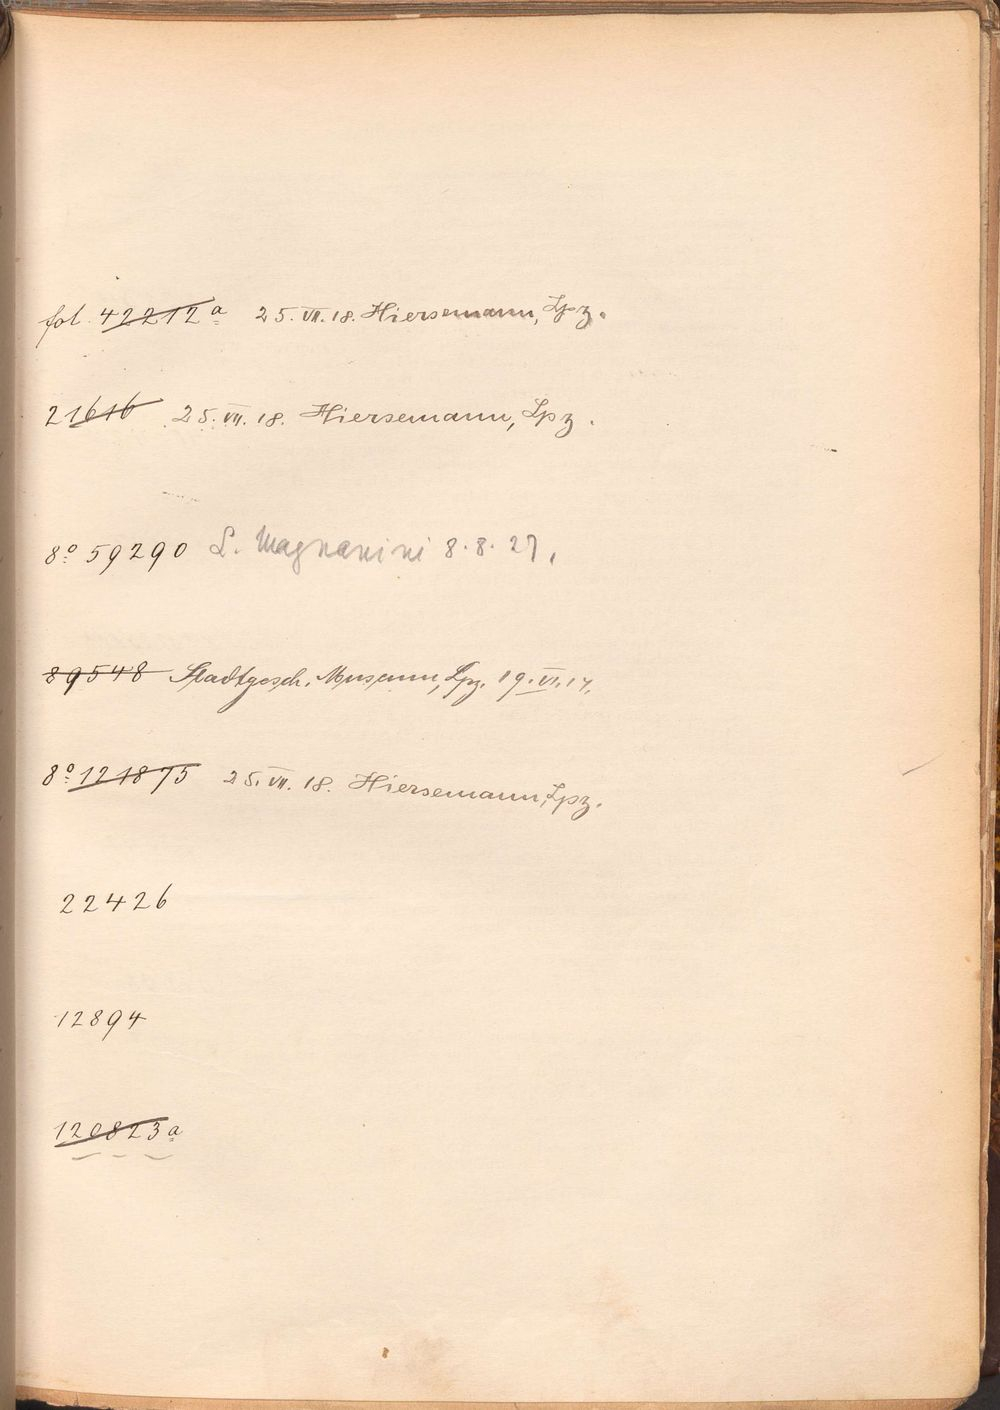 fol. 42212 a 25. VII. 18. Hiersemann, Lpz.
21616 25. VII. 18. Hiersemann, Lpz.
8° 59290 L. Magnanini 8. 8. 27.
89548 Stadtgesch. Museum, Lpz. 19. VI. 14.
8° 121875 25. VII. 18. Hiersemann, Lpz.
22426
12894
120823 a